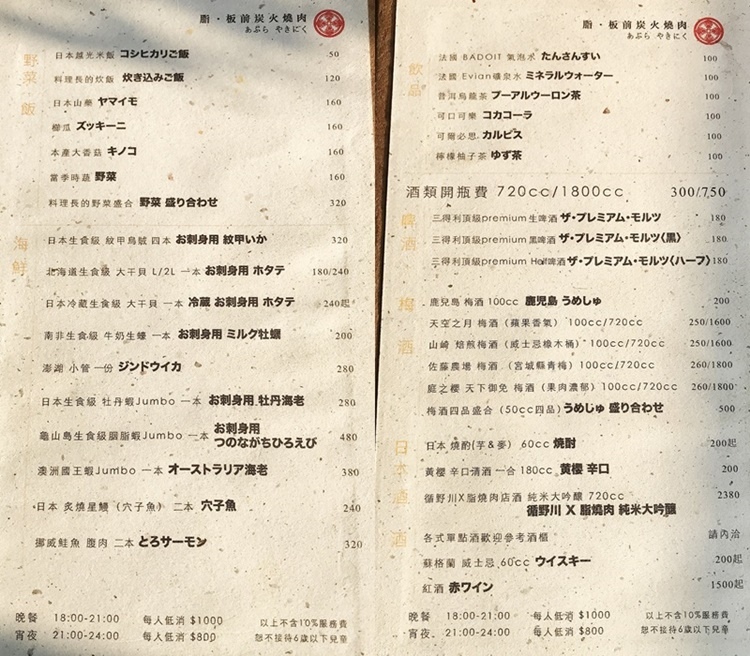 脂・板前炭火燒肉
あぶら やきにく
野菜 飯
日本越光米飯 コシヒカリご飯 50
料理長的炊飯 炊き込みご飯 120
日本山藥 ヤマイモ 160
櫛瓜 ズッキーニ 160
本產大香菇 キノコ 160
當季時蔬 野菜 160
料理長的野菜盛合 野菜 盛り合わせ 320
海鮮
日本生食級 紋甲烏賊 四本 お刺身用 紋甲いか 320
北海道生食級 大干貝 L/2L 一本 お刺身用 ホタテ 180/240
日本冷藏生食級 大干貝 一本 冷蔵 お刺身用 ホタテ 240起
南非生食級 牛奶生蠔 一本 お刺身用 ミルク牡蠣 200
澎湖 小管 一份 ジンドウイカ 280
日本生食級 牡丹蝦Jumbo 一本 お刺身用 牡丹海老 280
龜山島生食級胭脂蝦Jumbo 一本 お刺身用
つのながちひろえび 480
澳洲國王蝦Jumbo 一本 オーストラリア海老 380
日本 炙燒星鰻（穴子魚） 二本 穴子魚 240
挪威鮭魚 腹肉 二本 とろサーモン 320
晚餐 18:00-21:00 每人低消 $1000 以上不含10%服務費
宵夜 21:00-24:00 每人低消 $800 恕不接待6歲以下兒童
脂・板前炭火燒肉
あぶら やきにく
飲品
法國 BADOIT 氣泡水 たんさんすい 100
法國 Evian礦泉水 ミネラルウォーター 100
普洱烏龍茶 プーアルウーロン茶 100
可口可樂 コカコーラ 100
可爾必思 カルピス 100
檸檬柚子茶 ゆず茶 100
酒類開瓶費 720cc/1800cc 300/750
啤酒
三得利頂級premium生啤酒 ザ・プレミアム・モルツ 180
三得利頂級premium黑啤酒 ザ・プレミアム・モルツ〈黒〉 180
三得利頂級premium Half啤酒 ザ・プレミアム・モルツ〈ハーフ〉 180
梅酒
鹿兒島 梅酒 100cc 鹿児島 うめしゅ 200
天空之月 梅酒（蘋果香氣） 100cc/720cc 250/1600
山崎 焙煎梅酒（威士忌橡木桶） 100cc/720cc 250/1600
佐藤農場 梅酒（宮城縣青梅） 100cc/720cc 260/1800
庭之櫻 天下御免 梅酒（果肉濃郁） 100cc/720cc 260/1800
梅酒四品盛合（50cc四品）うめしゅ 盛り合わせ 500
日本酒
日本 燒酌(芋&麥) 60cc 焼酎 200起
黃櫻 辛口清酒 一合 180cc 黄櫻 辛口 200
循野川X脂燒肉店酒 純米大吟釀 720cc 2380
循野川 X 脂燒肉 純米大吟醸
酒
各式單點酒歡迎參考酒櫃 請內洽
蘇格蘭 威士忌 60cc ウイスキー 200起
紅酒 赤ワイン 1500起
晚餐 18:00-21:00 每人低消 $1000 以上不含10%服務費
宵夜 21:00-24:00 每人低消 $800 恕不接待6歲以下兒童